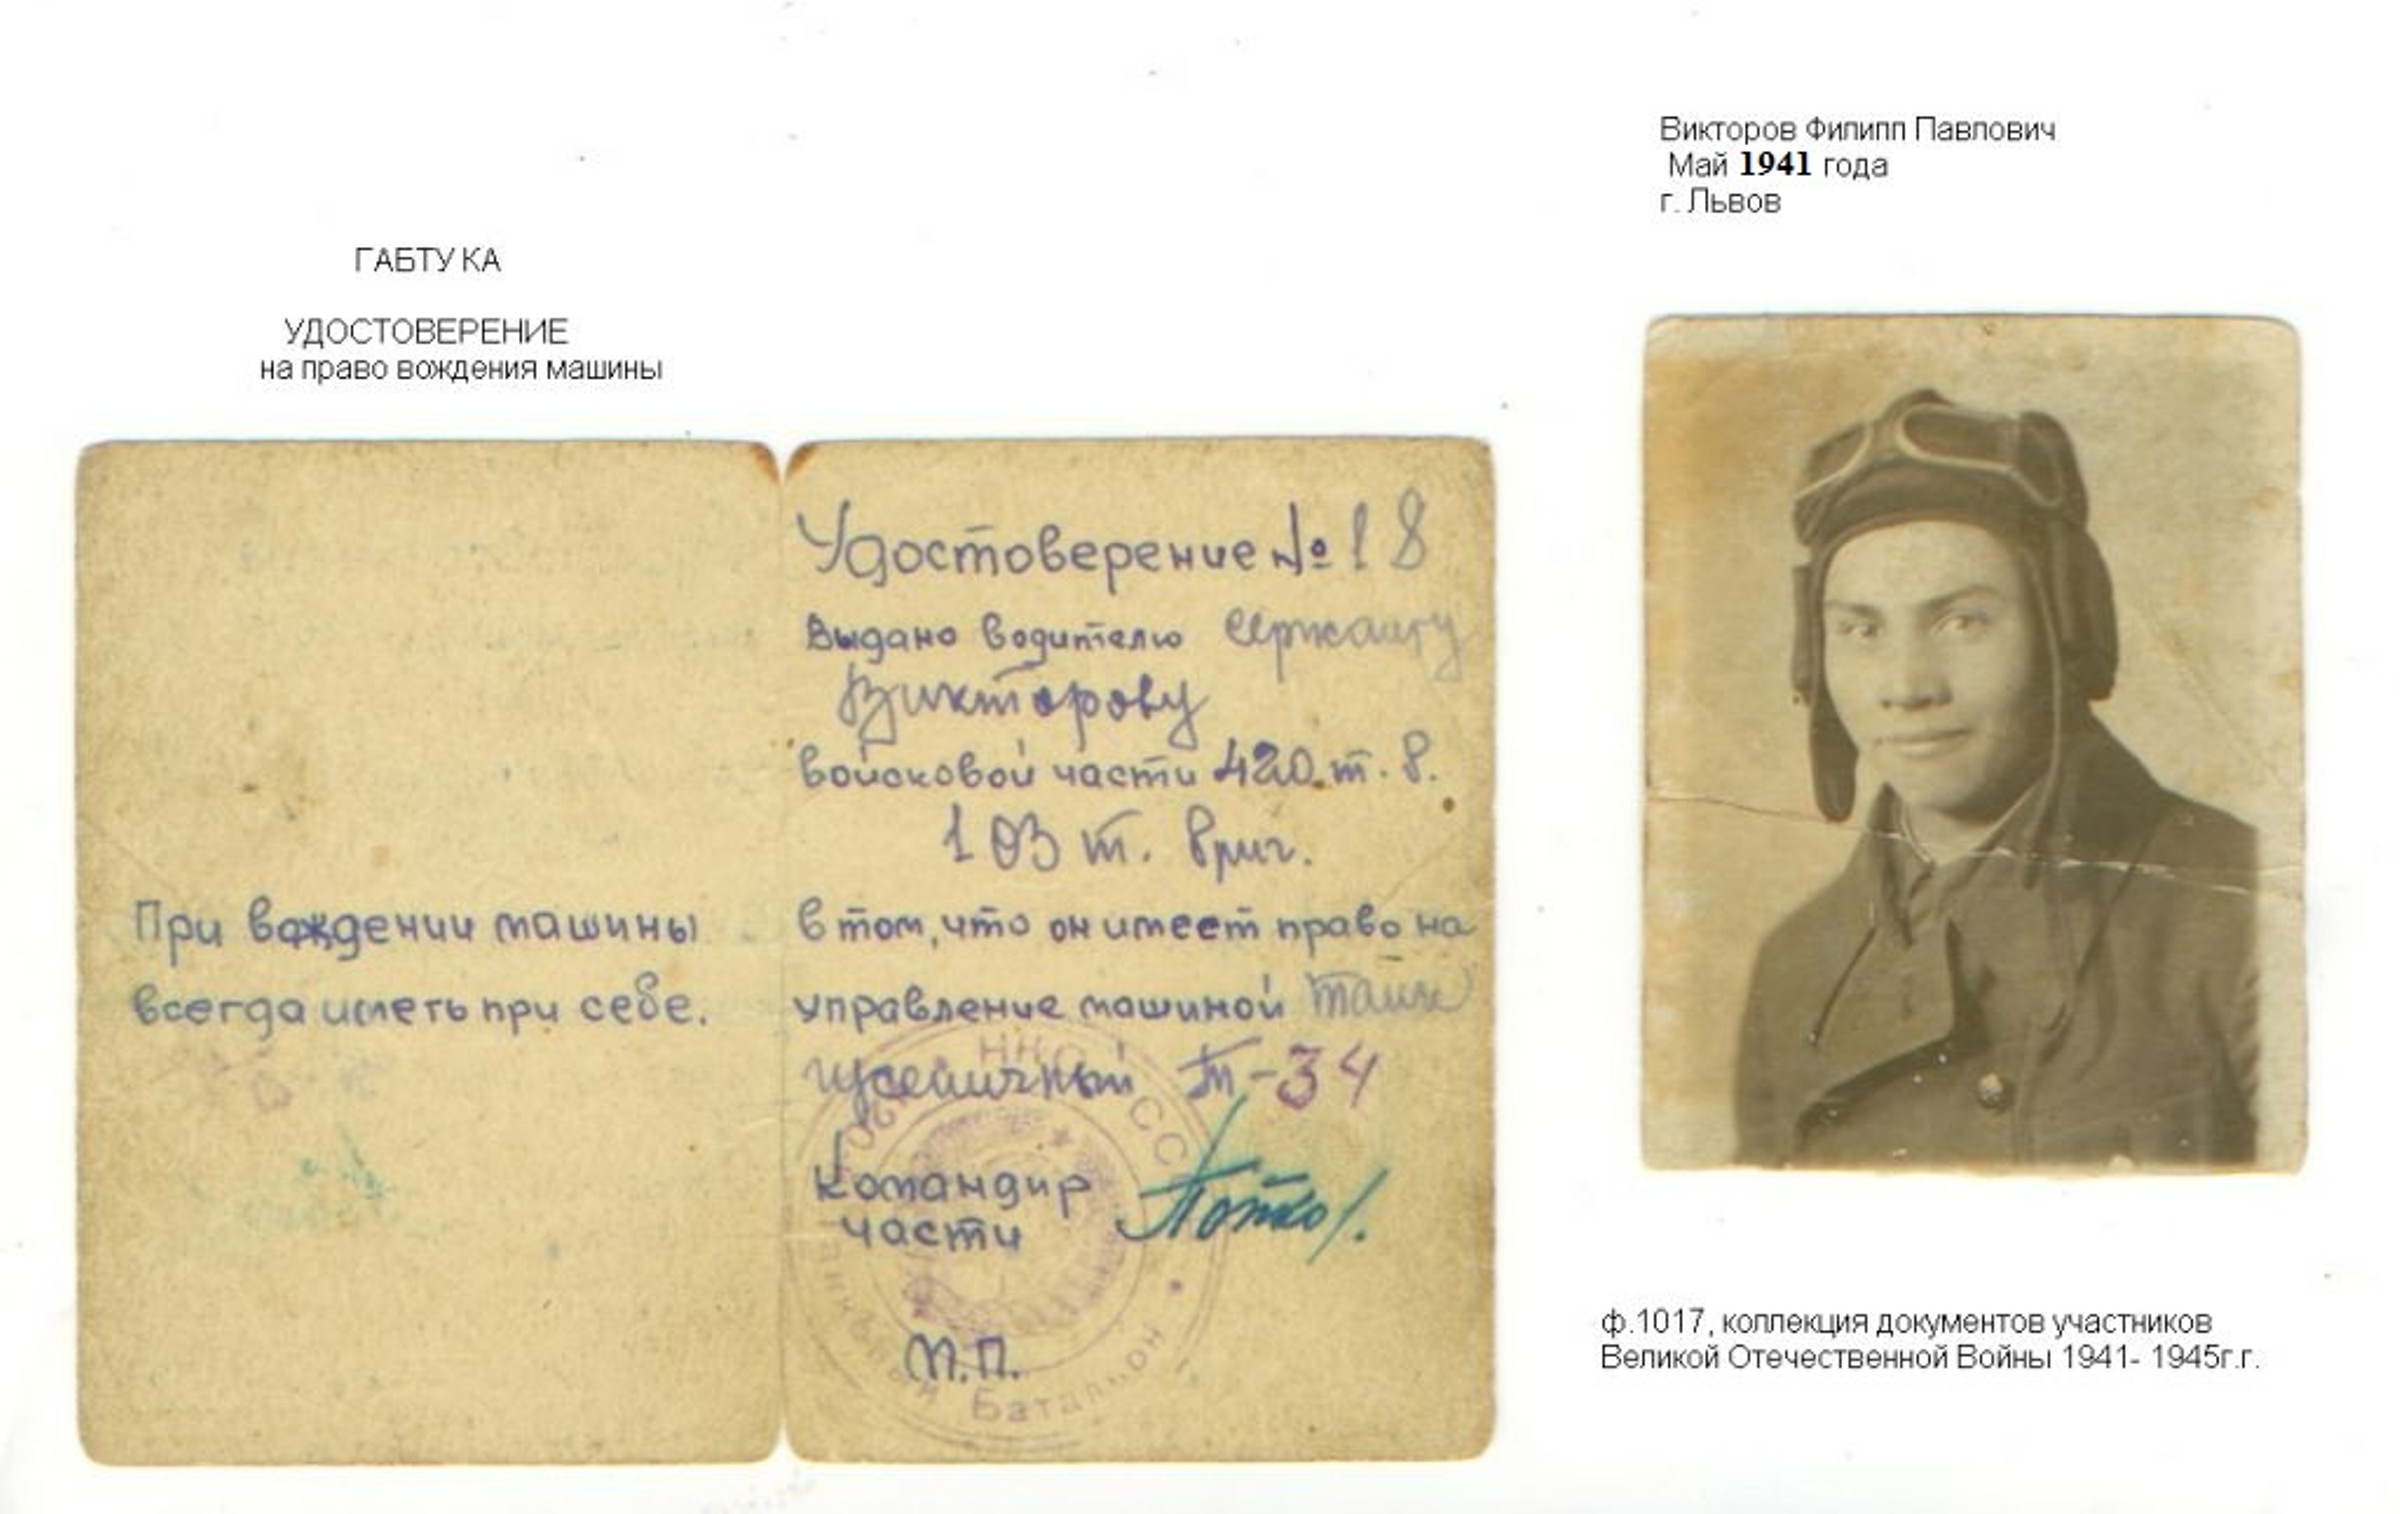 Викторов Филипп Павлович
Май 1941 года
г. Львов
ГАБТУ КА
УДОСТОВЕРЕНИЕ
на право вождения машины
При вождении машины
всегда иметь при себе.
Удостоверение № 18
Выдано водителю сержанту
Викторову
войсковой части 420 т. б.
103 т. бриг.
в том, что он имеет право на
управление машиной танк
гусеничный Т-34
Командир
части
М.П.
Батальон
ф.1017, коллекция документов участников
Великой Отечественной Войны 1941- 1945г.г.